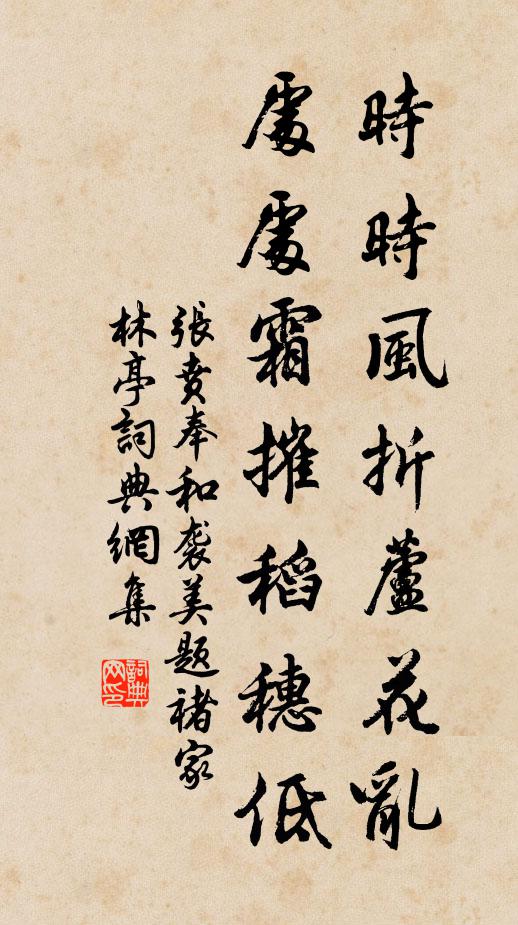 時時風折蘆花亂
處處霜摧稻穗低
張賁奉和袭美題褚家
林亭詞典網集
詞典
网印